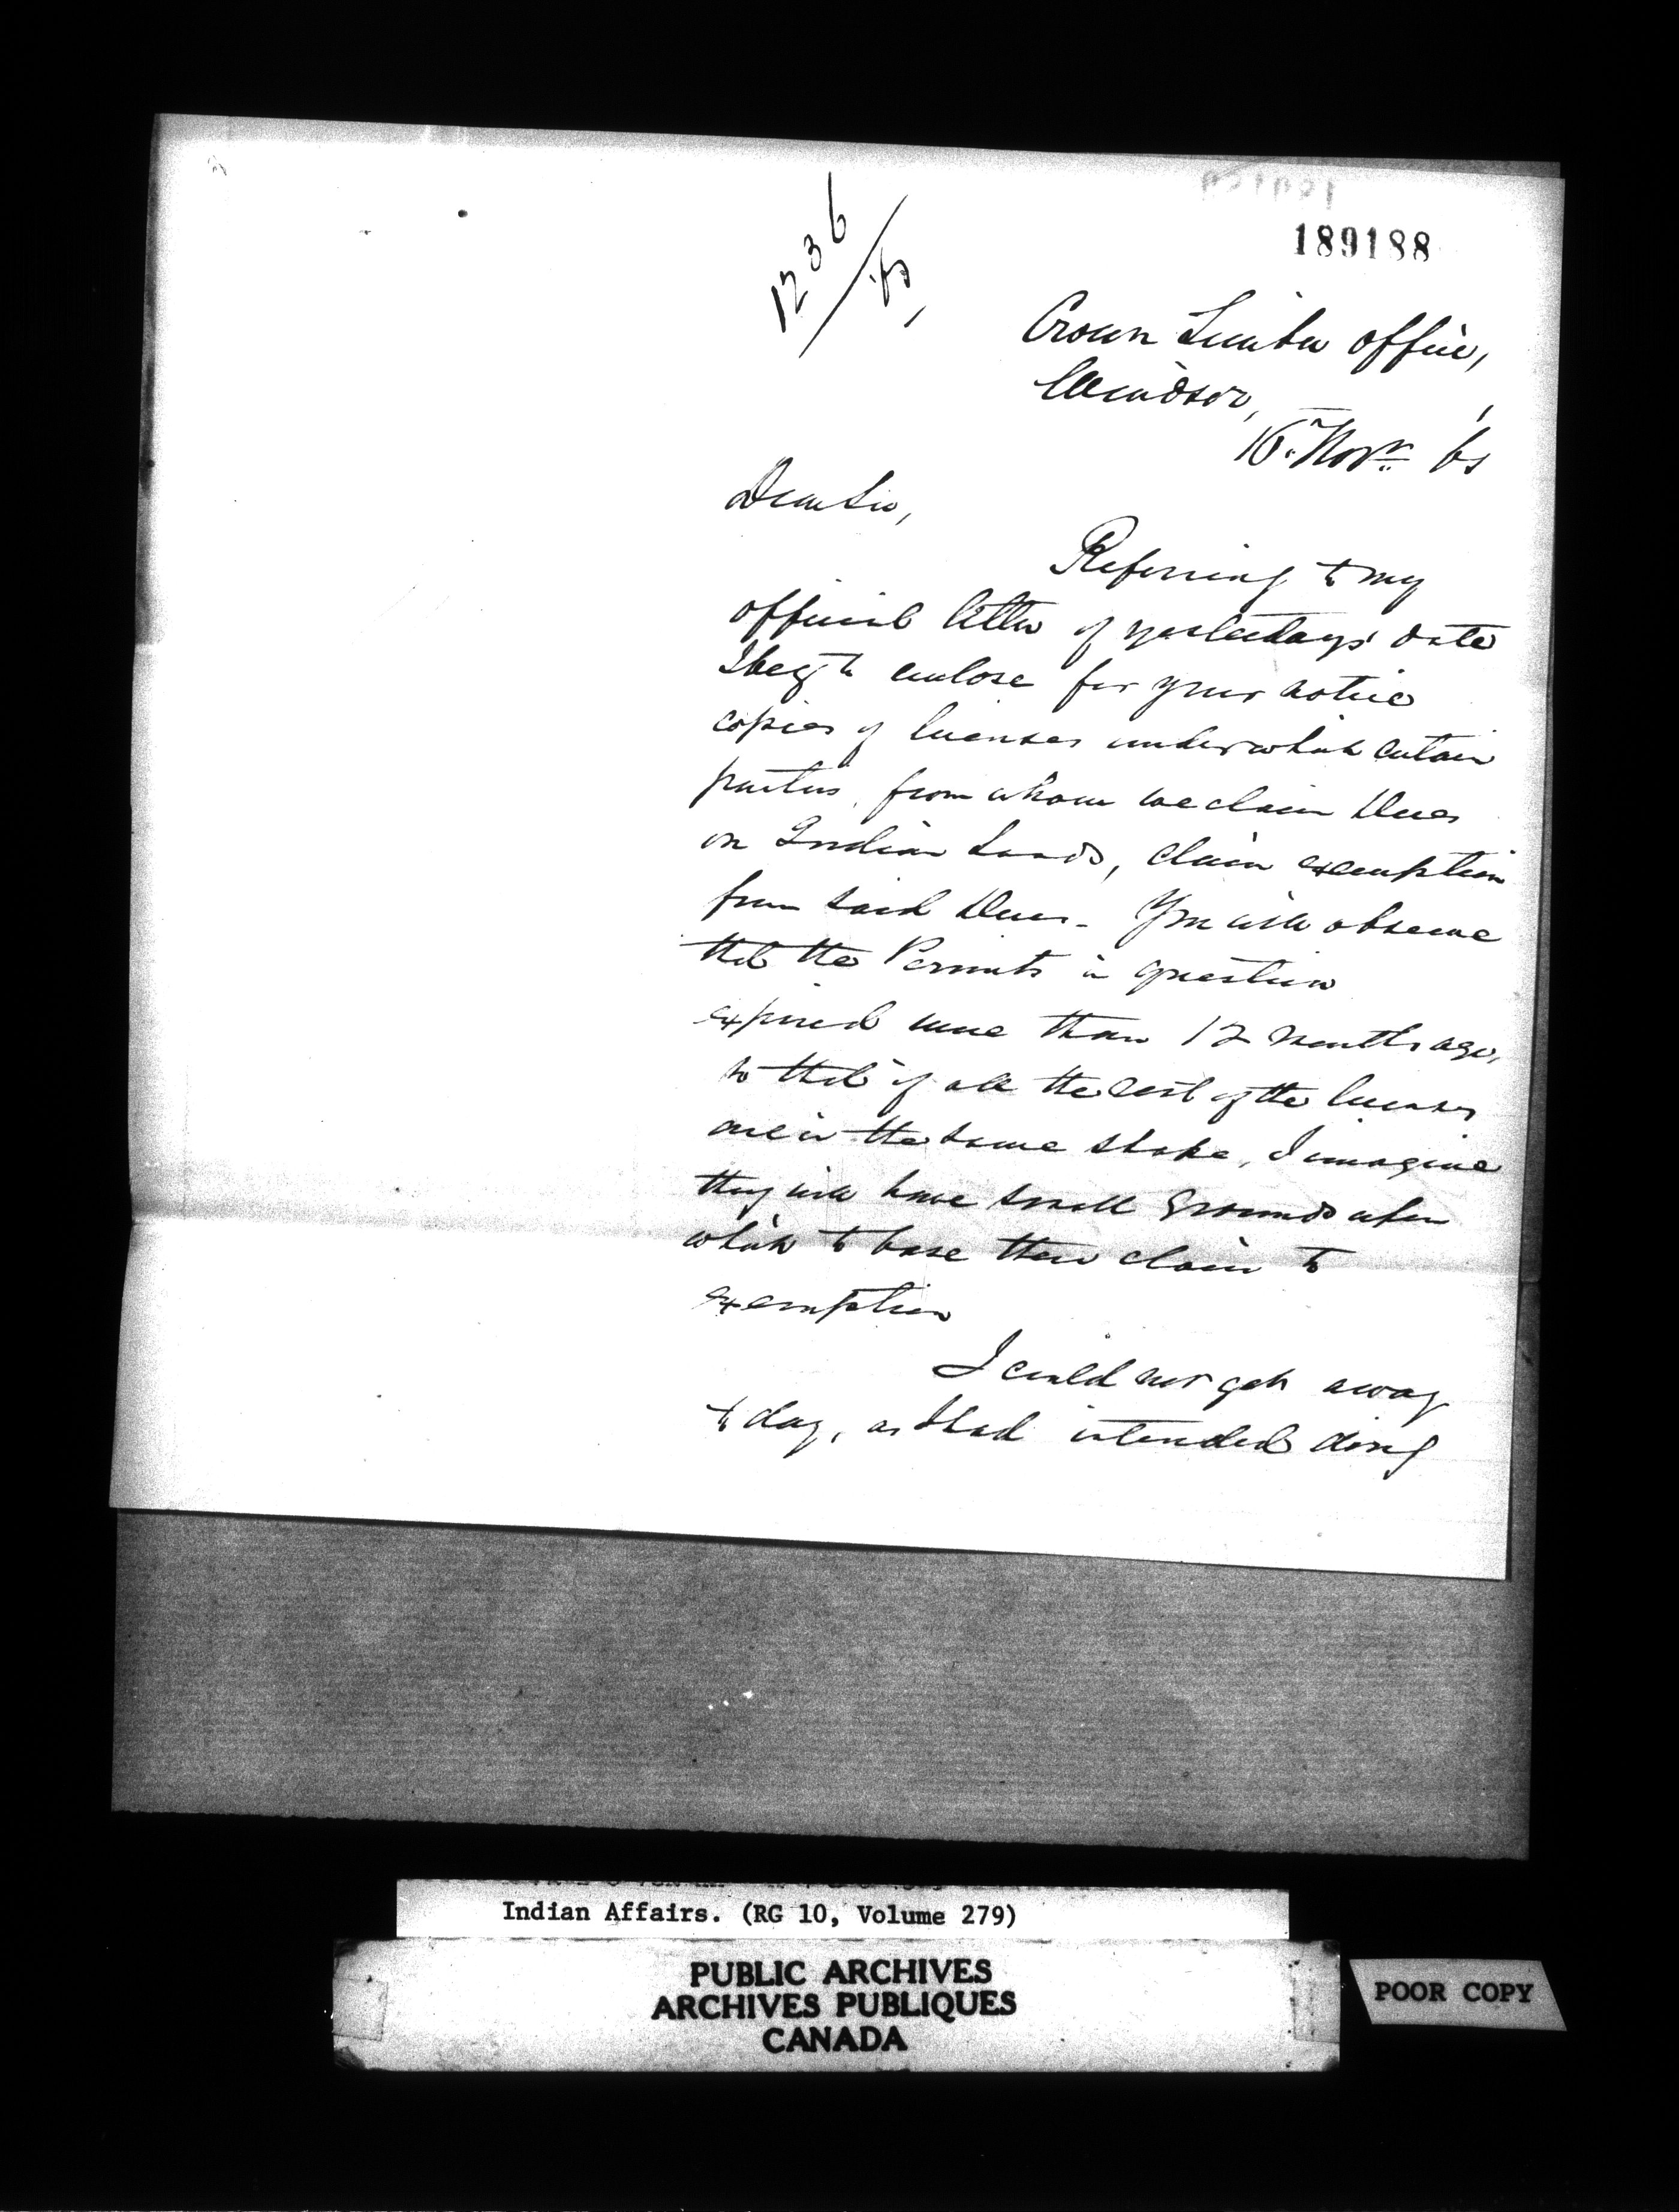 1236
/65,
189188
Crown Timber Office,
Windsor,
16. Novr. 65
Dear Sir,
Referring to my
official letter of yesterdays' date
I beg to enclose for your notice
copies of licenses under which certain
parties, from whom we claim Dues
on Indian Lands, claim exemption
from said Dues - You will observe
that the Permits in question
expired more than 12 months ago,
so that if all the rest of the licenses
are in the same shape, I imagine
they will have small grounds upon
which to base their claim to
exemption
I could not get away
to day, as I had intended doing
Indian Affairs. (RG 10, Volume 279)
PUBLIC ARCHIVES
ARCHIVES PUBLIQUES
CANADA
POOR COPY